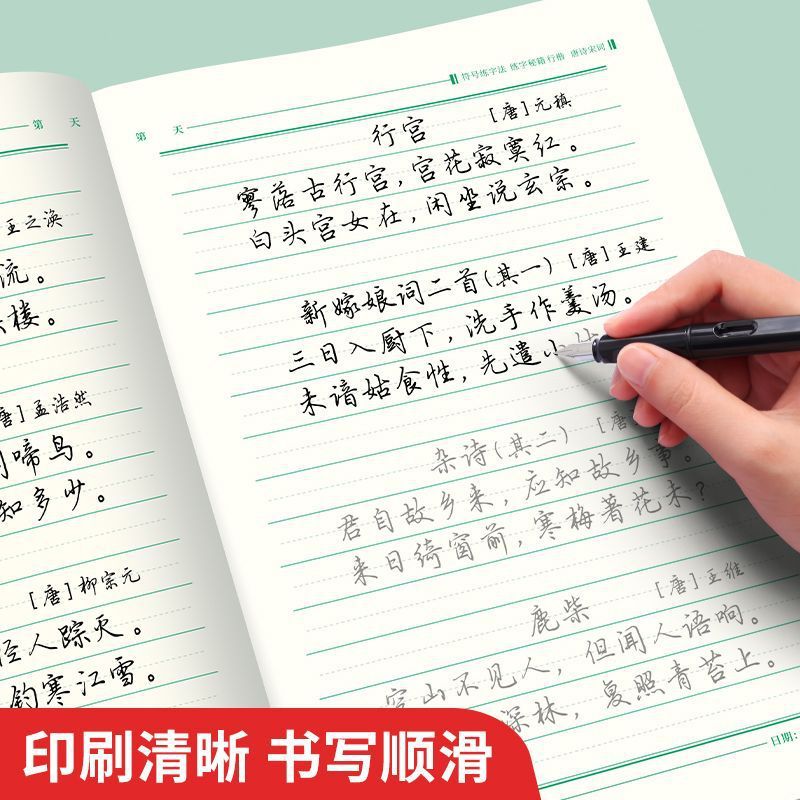 第 天
王之涣
流。
楼。
唐]孟浩然
啼鸟。
知多少。
[唐]柳宗元
径人踪灭。
钓寒江雪。
第 天
符号练字法 练字秘籍 行楷 唐诗宋词
行宫 [唐]元稹
寥落古行宫,宫花寂寞红。
白头宫女在,闲坐说玄宗。
新嫁娘词二首(其一) [唐]王建
三日入厨下,洗手作羹汤。
未谙姑食性,先遣小
杂诗(其二) [唐
君自故乡来,应知故乡事。
来日绮窗前,寒梅著花未?
鹿柴 [唐]王维
空山不见人,但闻人语响。
深林,复照青苔上。
日期:
印刷清晰 书写顺滑